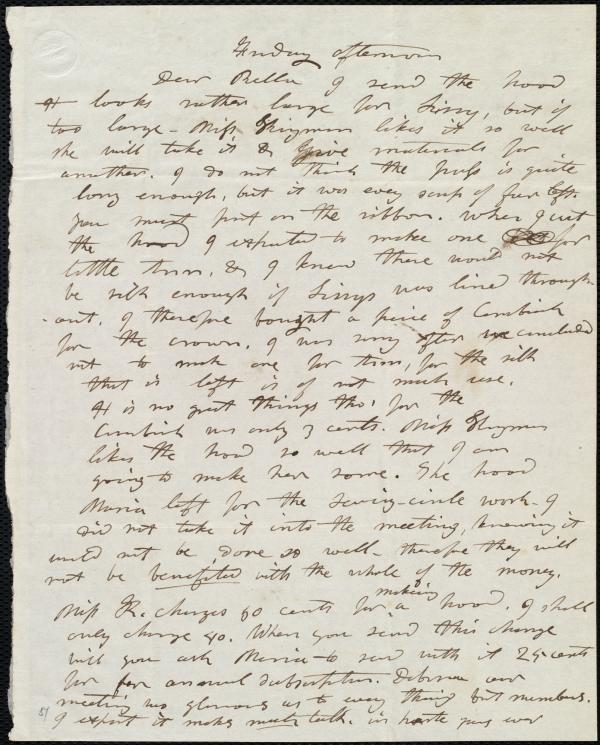 Friday afternoon
Dear Bella I send the hood
It looks rather large for Lizzy, but if
too large - Miss Shipman likes it so well
she will take it & give materials for
another. I do not think the puff is quite
long enough, but it was every scrap of fur left.
You must put on the ribbon. When I cut
the hood I expected to make one for
little Ann, & I knew there would not
be silk enough if Lizzys was lined through-
out. I therefore bought a piece of Cambrick
for the crown. I was sorry after we concluded
not to make one for Ann, for the silk
that is left is of not much use.
It is no great things tho', for the
Cambrick was only 3 cents. Miss
likes the hood so well that I am
going to make her some. The hood
Maria left for the sewing-circle work - I
did not take it into the meeting, knowing it
would not be done so well - therefore they will
not be benefited with the whole of the money.
Miss charges 50 cents for making a hood. I shall
only charge 40. When you send this change
will you ask Maria to send with it 25 cents
for annual subscription. our
meeting was glorious as to every thing but numbers.
I expect it makes much talk. in haste yours ever